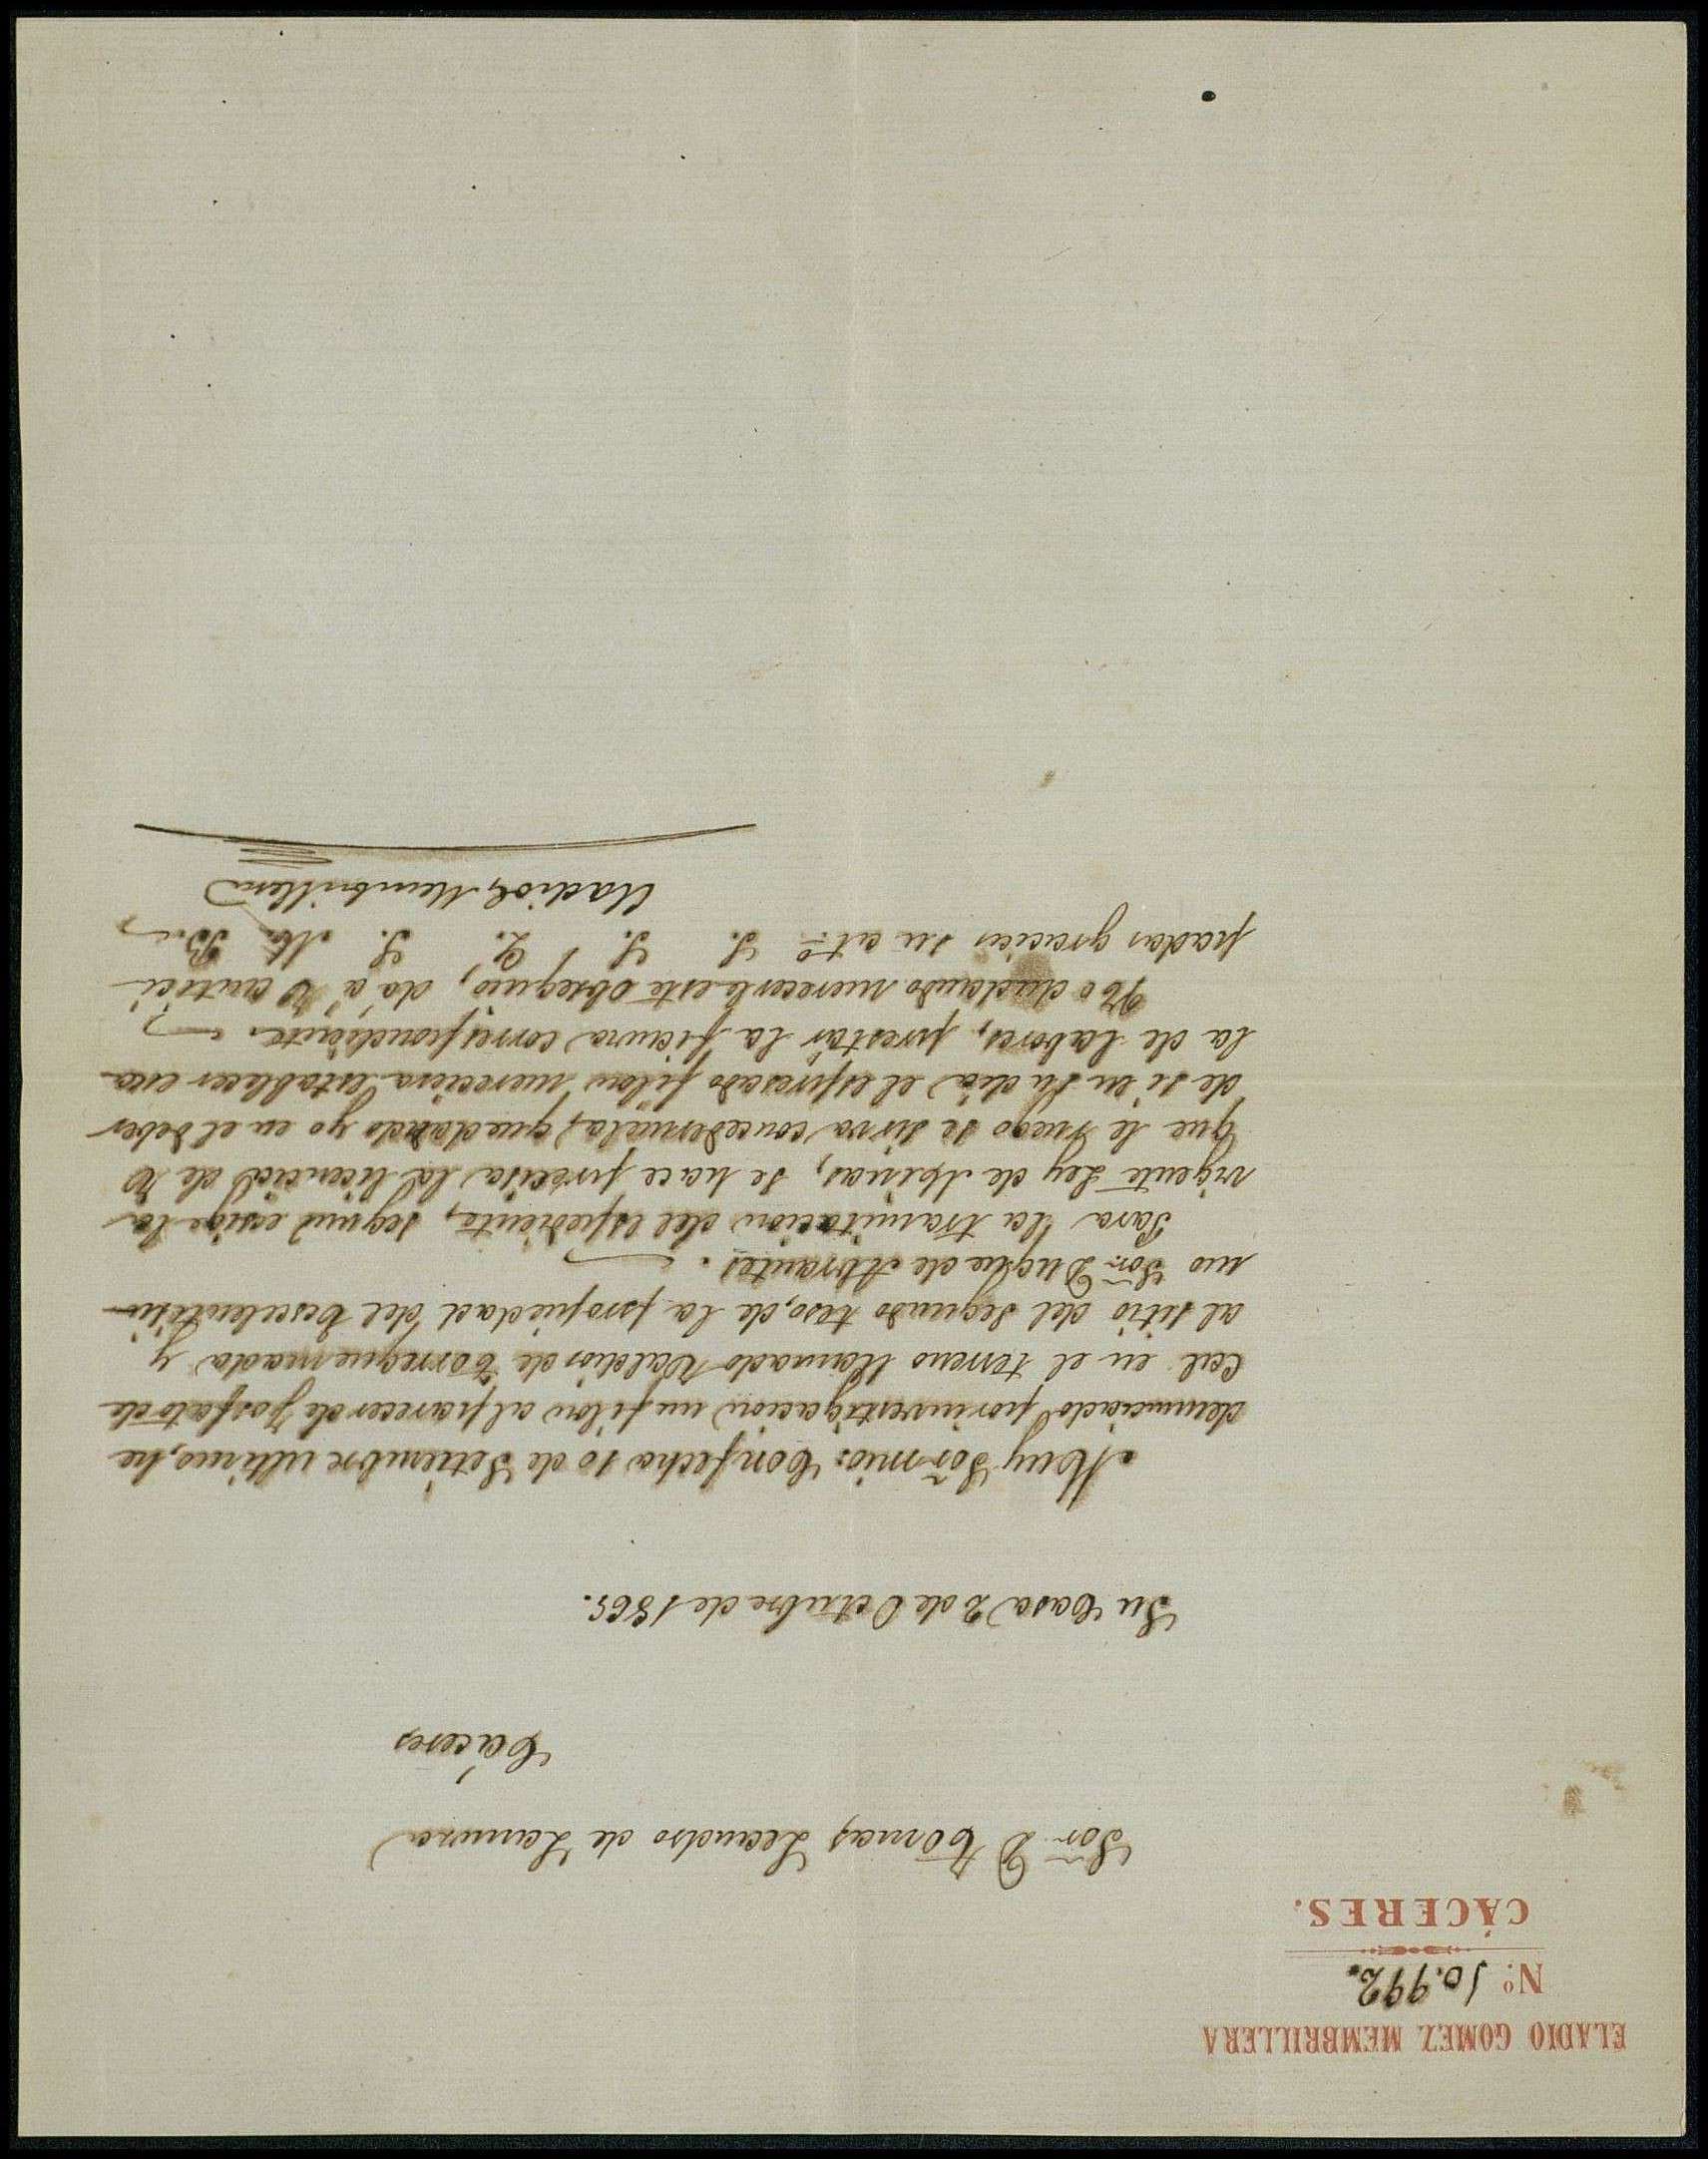 ELADIO GOMEZ MEMBRILLERA
N.º 10.992.
CÁCERES.
Sor. D Tomas Leandro de Zamora
Cáceres
Su Casa 2 de Octubre de 1865.
Muy Sor mio: Con fecha 10 de Setiembre ultimo, he
denunciado por investigacion un filon al parecer de fosfato de
Cal en el terreno llamado Valdios de Torrequemada y
al sitio del segundo teso, de la propiedad del Escelentisi-
mo Sor. Duque de Abrantes.
Para la tramitacion del espediente, segun ecsige la
vigente Ley de Minas, se hace precisa la licencia de V
que le ruego se sirva concedermela, quedando yo en el deber
de si en su dia el espresado filon mereciera establecer esca-
la de labores, prestar la fianza correspondiente.
No dudando merecerle este obsequio, dá á V antici-
padas gracias su at.º S. S. Q. S. M. B.
Eladio G. Membrillera